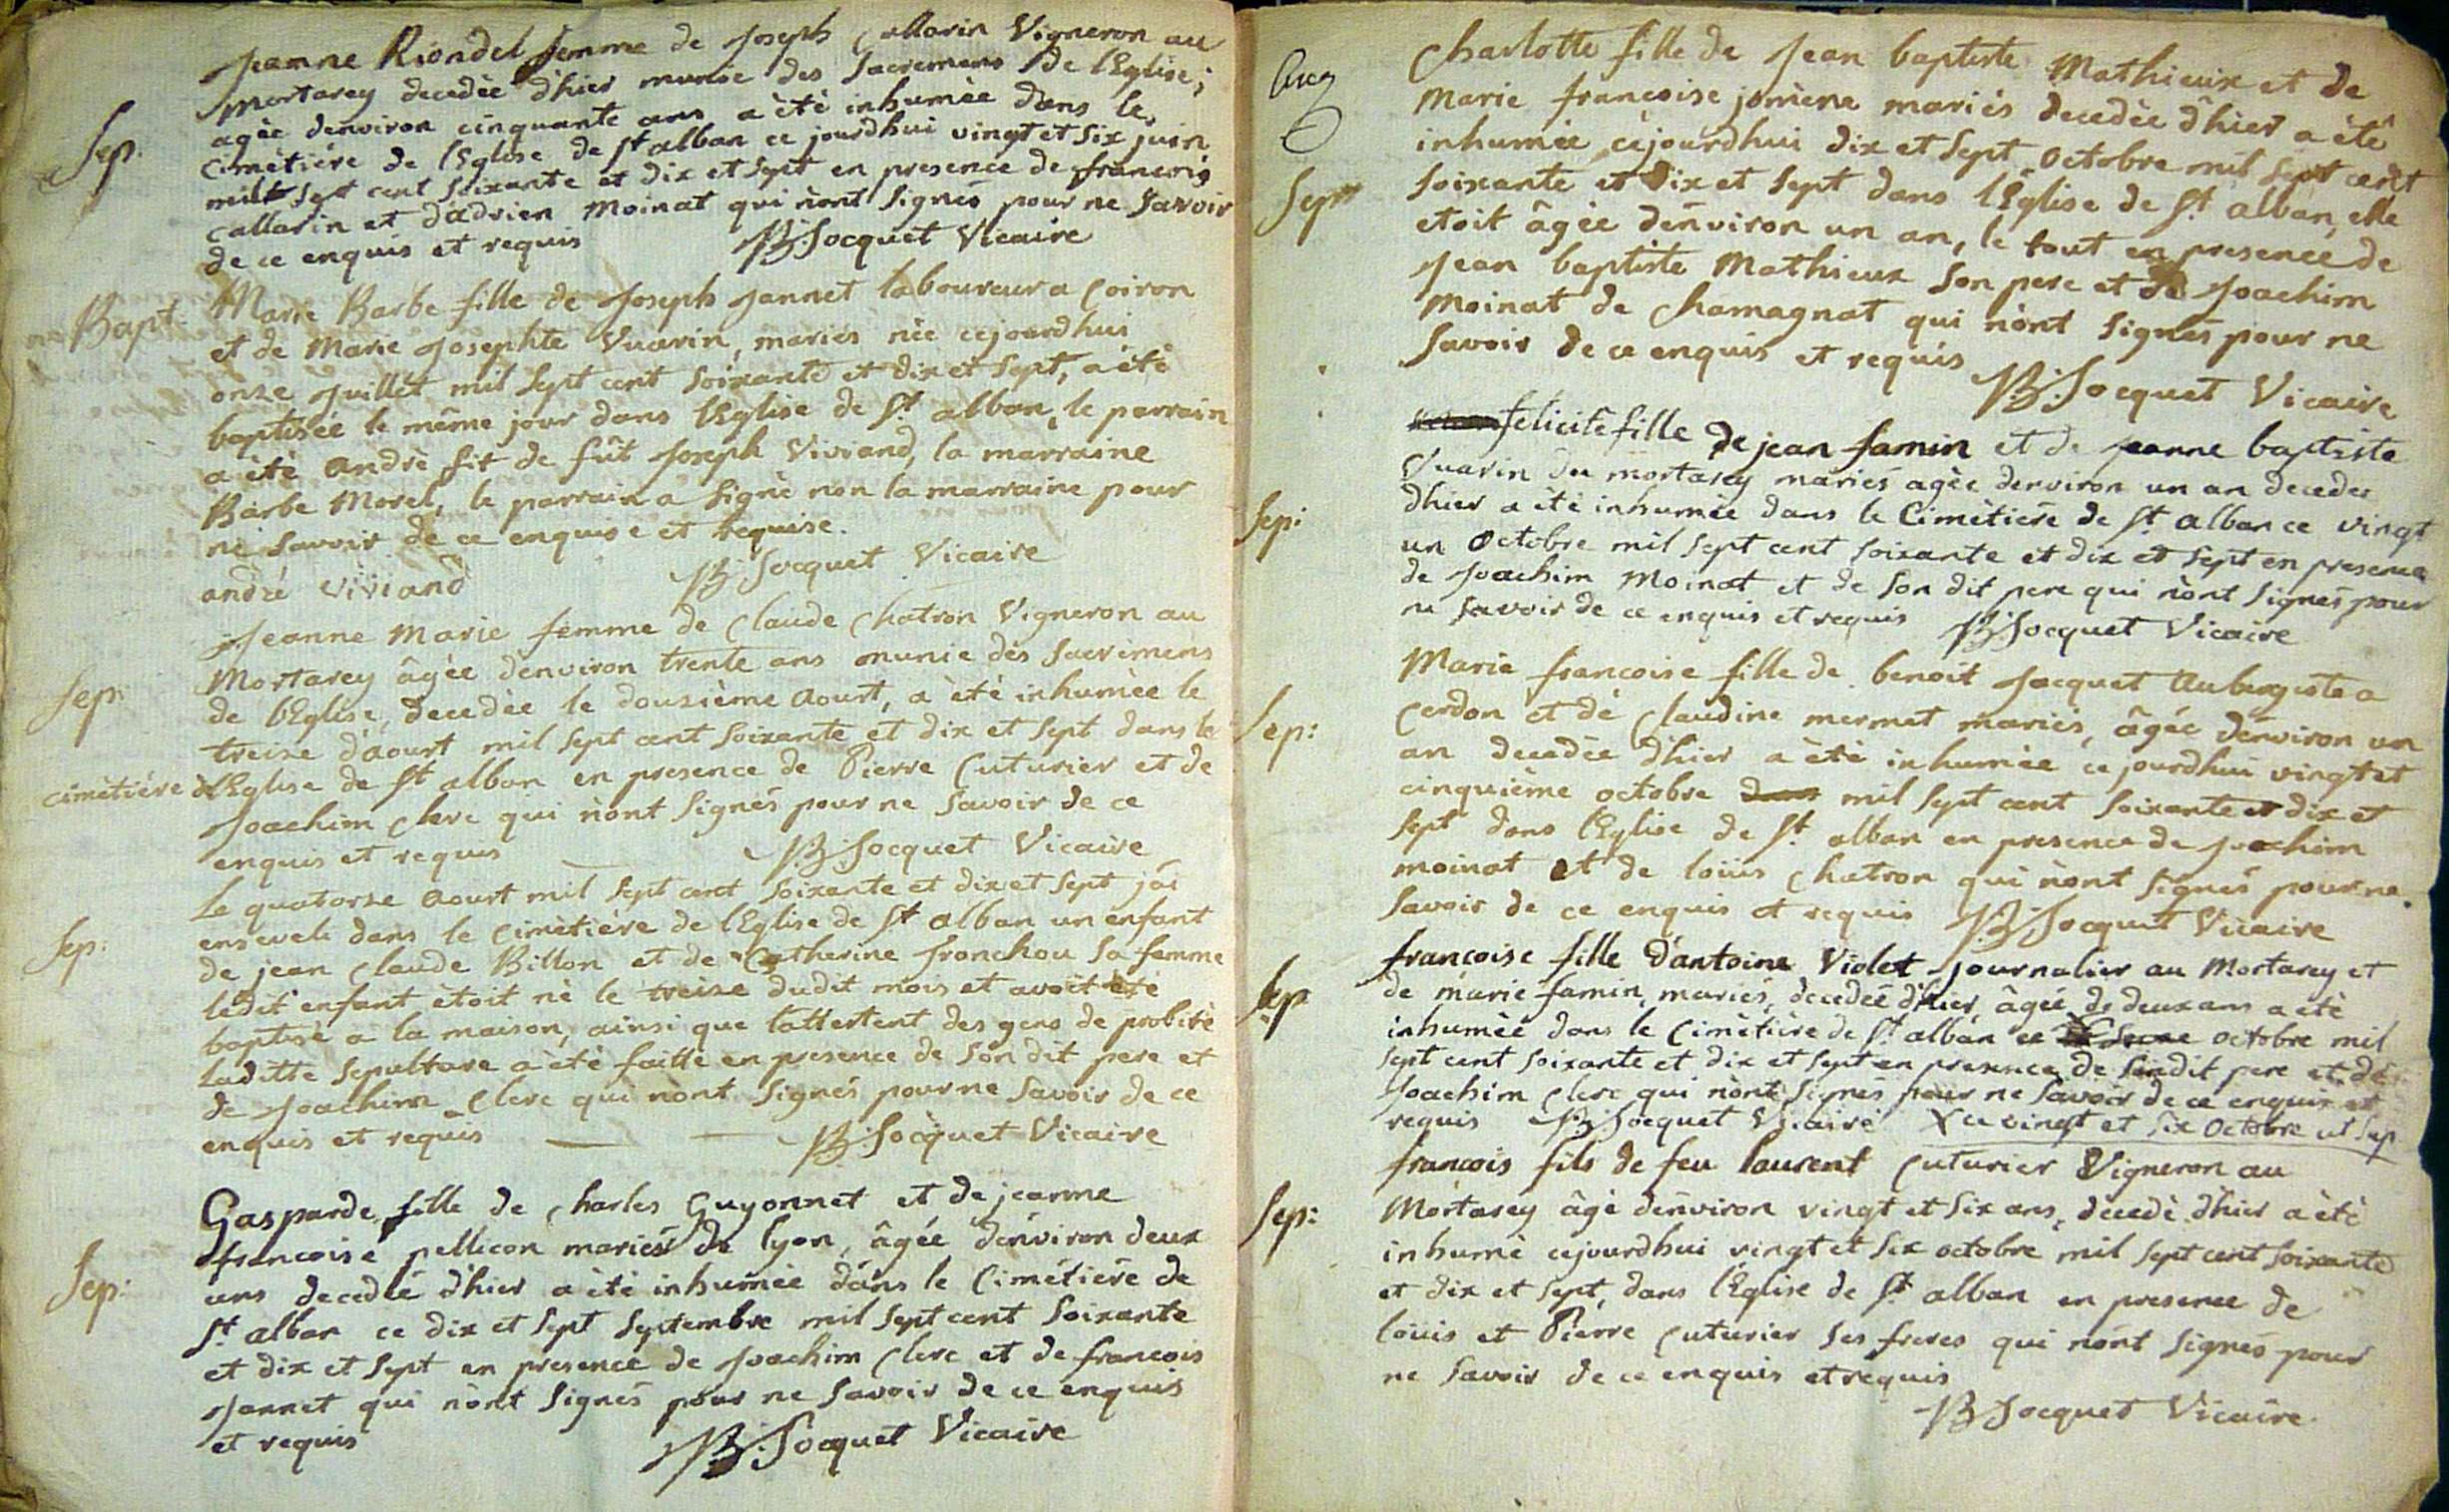 Jeanne Riondel femme de Joseph Callarin Vigneron au
Mortarey decedèe d'hier munie des Sacremens de l'Eglise;
agèe denviron cinquante ans a étè inhumèe dans le
Sep.
Cimètière de l'Eglise de St alban ce jourdhui vingt et Six juin
mil Sept cent Soixante et dix et Sept en presence de francois
Callarin et d'adrien Moinat qui n'ont Signés pour ne Savoir
de ce enquis et requis JB Jocquet Vicaire
Bapt.
Marie Barbe fille de Joseph Jannet laboureur a Coiron
et de Marie Josephte Vuarin, mariés nèe cejourdhui
onze Juillet mil Sept cent Soixante et dix et Sept, a étè
baptisèe le même jour dans l'Eglise de St alban, le parrain
a étè Andrè fit de fût Joseph Viviand, la marraine
Barbe Morel, le parrain a Signè non la marraine pour
ne Savoir de ce enquise et requise.
andré viviand JB Jocquet Vicaire
Jeanne Marie femme de Claude Chatron Vigneron au
Sep:
Mortarey âgèe denviron trente ans munie des Sacremens
de l'Eglise, decedèe le douzième Aoust, a étè inhumèe le
treize d'aoust mil Sept cent Soixante et dix et Sept dans le
cimètière de l'Eglise de St alban en presence de Pierre Cuturier et de
Joachim Clerc qui n'ont Signés pour ne Savoir de ce
enquis et requis JB Jocquet Vicaire
Le quatorze Aoust mil Sept cent Soixante et dix et Sept j'ai
Sep:
enseveli dans le Cimètière de l'Eglise de St alban un enfant
de jean Claude Billon et de Catherine fronchou Sa femme
ledit enfant ètoit nè le treize dudit mois et avoit étè
baptisè a la maison, ainsi que l'attestent des gens de probitè
laditte Sepulture a étè faitte en presence de Son dit pere et
de Joachim Clerc qui n'ont Signés pour ne Savoir de ce
enquis et requis JB Jocquet Vicaire
Gasparde fille de Charles Guyonnet et de jeanne
francoise pellecon mariés de lyon, âgée d'environ deux
Sep:
ans decedèe d'hier a étè inhumèe dans le Cimètière de
St alban ce dix et Sept Septembre mil Sept cent Soixante
et dix et Sept en presence de Joachim Clerc et de francois
Jannet qui n'ont Signés pour ne Savoir de ce enquis
et requis JB Jocquet Vicaire
Charlotte fille de Jean baptiste Mathieux et de
Marie francoise jomène mariés decedèe d'hier a étè
inhumèe, cejourdhui dix et Sept Octobre mil Sept cent
Sep
Soixante et Dix et Sept dans l'Eglise de St alban, elle
etoit âgèe denviron un an, le tout en presence de
Jean baptiste Mathieux Son pere et de Joachim
Moinat de Chamagnat qui n'ont Signés pour ne
Savoir de ce enquis et requis
JB Jocquet Vicaire
felicité fille de jean famin et de Jeanne baptiste
Vuarin du mortarey mariés agèe denviron un an decedee
Sep:
dhier a étè inhumèe dans le Cimètiere de St alban ce vingt
un Octobre mil Sept cent Soixante et dix et Sept en presence
de Joachim Moinat et de Son dit pere qui n'ont Signés pour
ne Savoir de ce enquis et requis JB Jocquet Vicaire
Marie francoise fille de benoît Jacquet Aubergiste a
Sep:
Cerdon et de Claudine mermet mariés, âgée denviron un
an decedèe d'hier a étè inhumèe ce jourdhui vingt et
cinquième octobre dans mil Sept cent Soixante et dix et
Sept dans l'Eglise de St alban en presence de Joachim
moinat et de loüis Chatron qui n'ont Signés pour ne
Savoir de ce enquis et requis JB Jocquet Vicaire
francoise fille d'antoine Violet journalier au Mortarey et
Sep
de marie famin, mariés, decedèe d'hier, âgée de deux ans a étè
inhumèe dans le Cimètière de St alban ce octobre mil
Sept cent Soixante et dix et Sept en presence de Sondit pere et de
Joachim Clerc qui n'ont Signés pour ne Savoir de ce enquis et
requis JB Jocquet Vicaire X ce vingt et Six Octobre ut Sup
francois fils de feu laurent Cuturier Vigneron au
Sep:
Mortarey âgè denviron vingt et Six ans, decedè d'hier a étè
inhumè cejourdhui vingt et Six octobre mil Sept cent Soixante
et dix et Sept, dans l'Eglise de St alban en presence de
loüis et Pierre Cuturier Ses freres qui n'ont Signés pour
ne Savoir de ce enquis et requis
JB Jocquet Vicaire